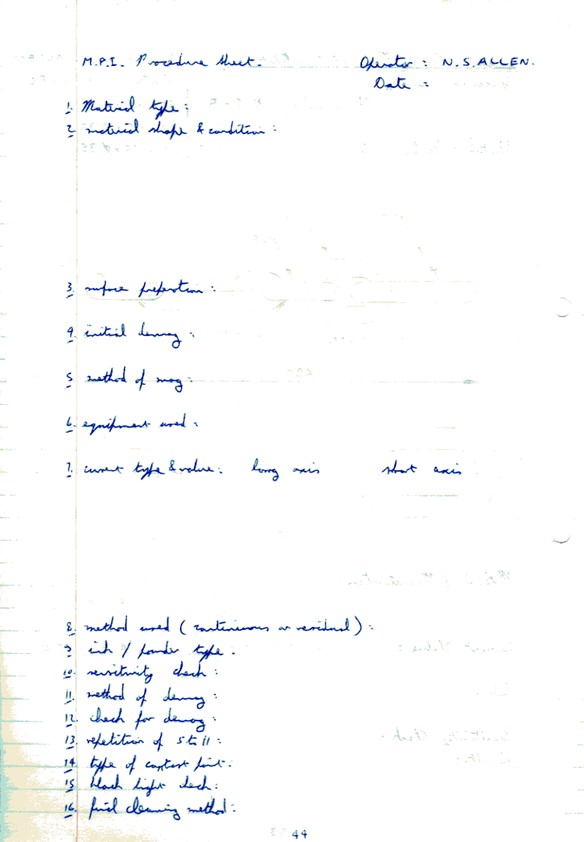 M.P.I. Procedure Sheet. Operator : N.S.ALLEN.
Date :
1. Material type :
2. material shape & condition :
3. surface preperation :
4. initial demag :
5. method of mag :
6. equipment used :
7. current type & value : long axis short axis
8. method used (continuous or residual) :
9. ink / powder type .
10. sensitivity check :
11. method of demag :
12. check for demag :
13. repetition of 5 to 11 :
14. type of contrast paint :
15. black light check :
16. final cleaning method :
44